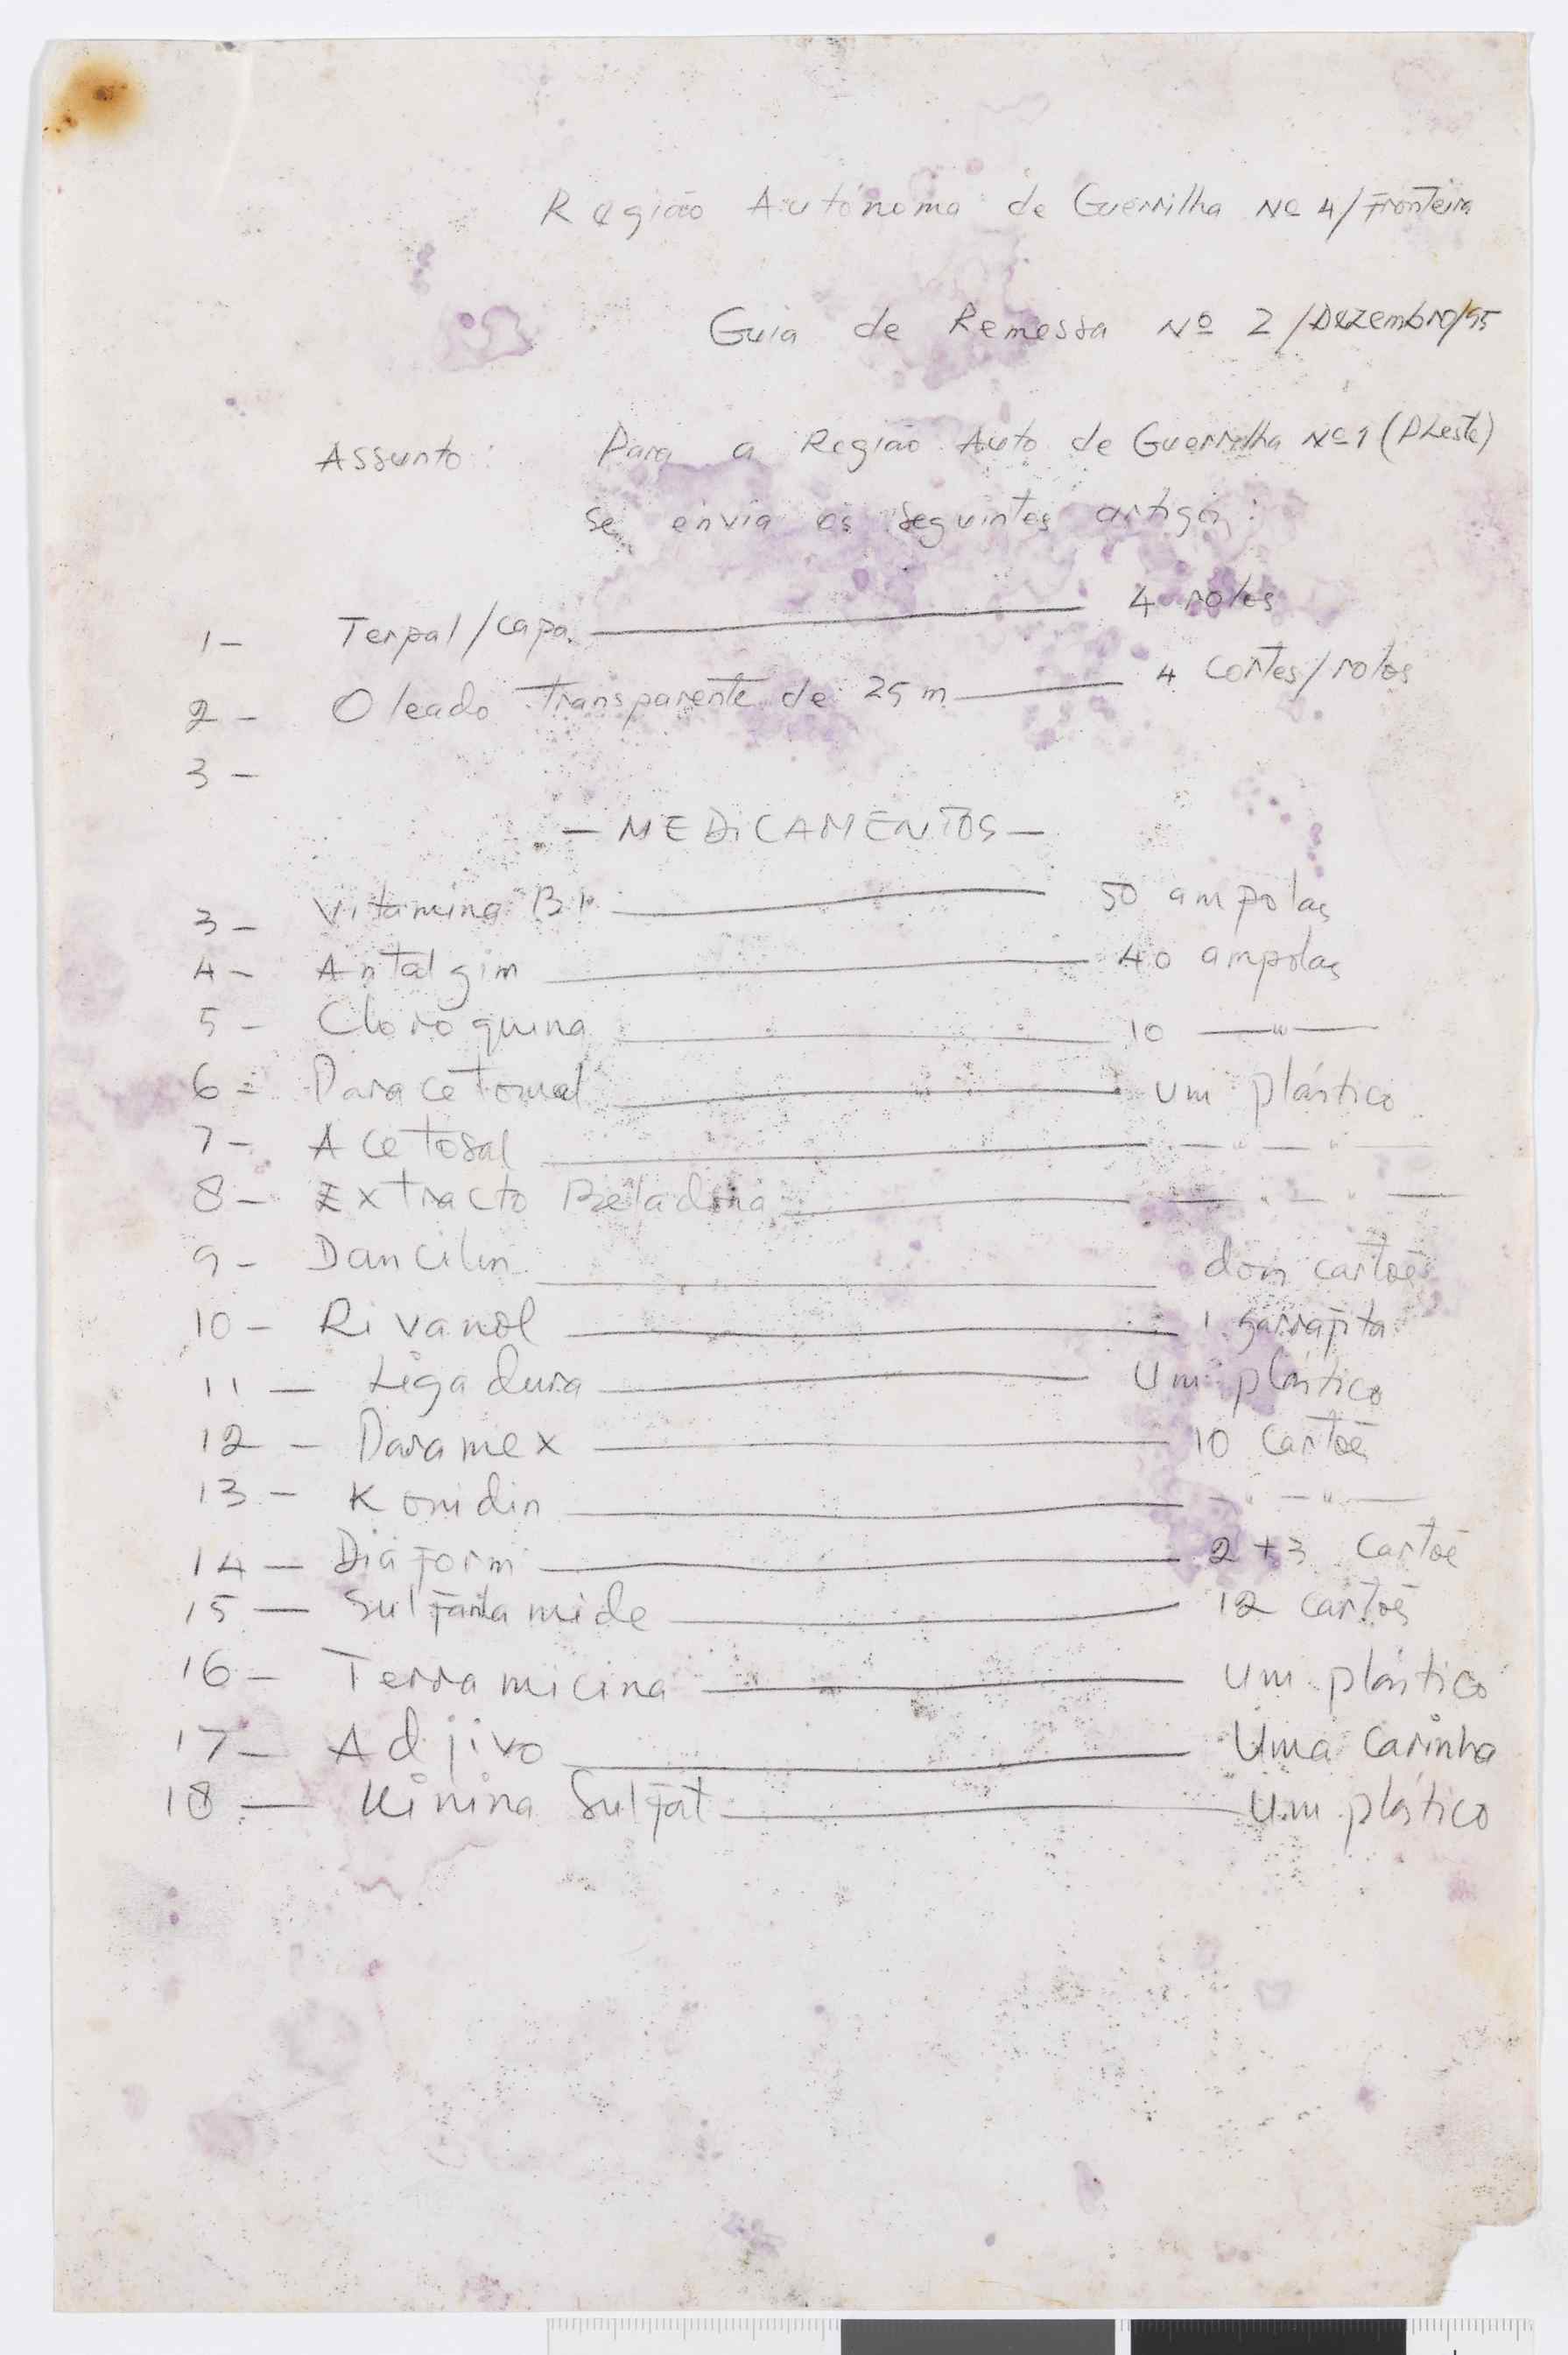 Região Autónoma de Guerrilha Nº 4/Fronteira
Guia de Remessa Nº 2/Dezembro/95
Assunto: Para a Região Auto de Guerrilha Nº 1 (PLeste)
se envia os seguintes artigos:
1- Terpal/capa 4 rolos
2- Oleado transparente de 25 m 4 cortes/rolos
3-
- MEDICAMENTOS -
3- Vitamina B1 50 ampolas
4- Antalgim 40 ampolas
5- Cloroquina 10 —"—
6= Paracetomal um plástico
7- Acetosal —"—"—
8- Extracto Beladona —"—"—
9- Pancilin dois cartõe
10- Rivanol 1 garrafita
11- Ligadura Um plástico
12- Paramex 10 Cartõe
13- Konidin —"—"—
14- Diaform 2+3 Cartõe
15- Sulfanlamide 12 cartõe
16- Terramicina um plástico
17- Adjivo Uma Carinha
18- Kinina Sulfat Um plástico